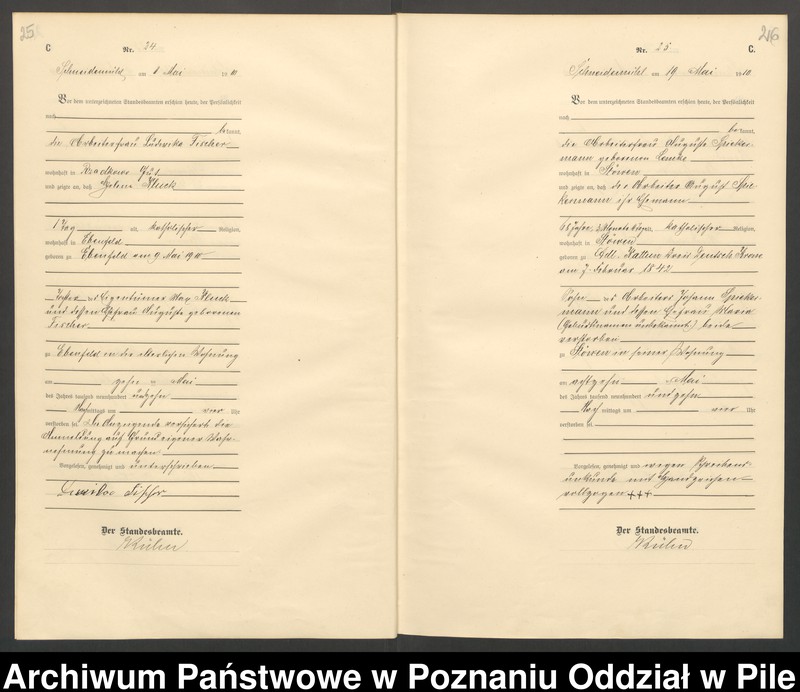 25
C
Nr. 24
Schneidemühl, am Mai 1910
Vor dem unterzeichneten Standesbeamten erschien heute, der Persönlichkeit
nach
be kannt,
die Arbeiterfrau Ludwika Tischer
wohnhaft in Gut
und zeigte an, daß Helene Kluck
1 Tag alt, katholischer Religion,
wohnhaft in Ebenfeld
geboren zu Ebenfeld am 9 Mai 1910
Tochter des Eigentümers Max Kluck
und dessen Ehefrau Auguste geborenen
Tischer
zu Ebenfeld in der elterlichen Wohnung
am zehn ten Mai
des Jahres tausend neunhundert und zehn
Nach mittags um vier Uhr
verstorben sei. Die Anzeigende versichert die
Anmeldung auf Grund eigener Wahr-
nehmung zu machen.
Vorgelesen, genehmigt und unterschrieben
Der Standesbeamte.
Kühn
26
Nr. 25
C.
Schneidemühl am 19 Mai 1910
Vor dem unterzeichneten Standesbeamten erschien heute, der Persönlichkeit
nach
be kannt,
die Arbeiterfrau Auguste Spicker-
mann geborenen Lemke
wohnhaft in Stöwen
und zeigte an, daß der Arbeiter August Spic-
kermann ihr Ehemann
68 Jahre, 3 Monate alt, katholischer Religion,
wohnhaft in Stöwen
geboren zu Kattun Kreis Deutsch Krone
am 7. Februar 1842
Sohn des Arbeiters Johann Spicker-
mann und dessen Ehefrau Maria
(Geburtsnamen unbekannt) beide
verstorben
zu Stöwen in seiner Wohnung
am achtzehn ten Mai
des Jahres tausend neunhundert und zehn
Nach mittags um vier Uhr
verstorben sei.
Vorgelesen, genehmigt und wegen Schreibens-
unkunde mit Handzeichen
vollzogen +++
Der Standesbeamte.
Kühn
Archiwum Państwowe w Poznaniu Oddział w Pile